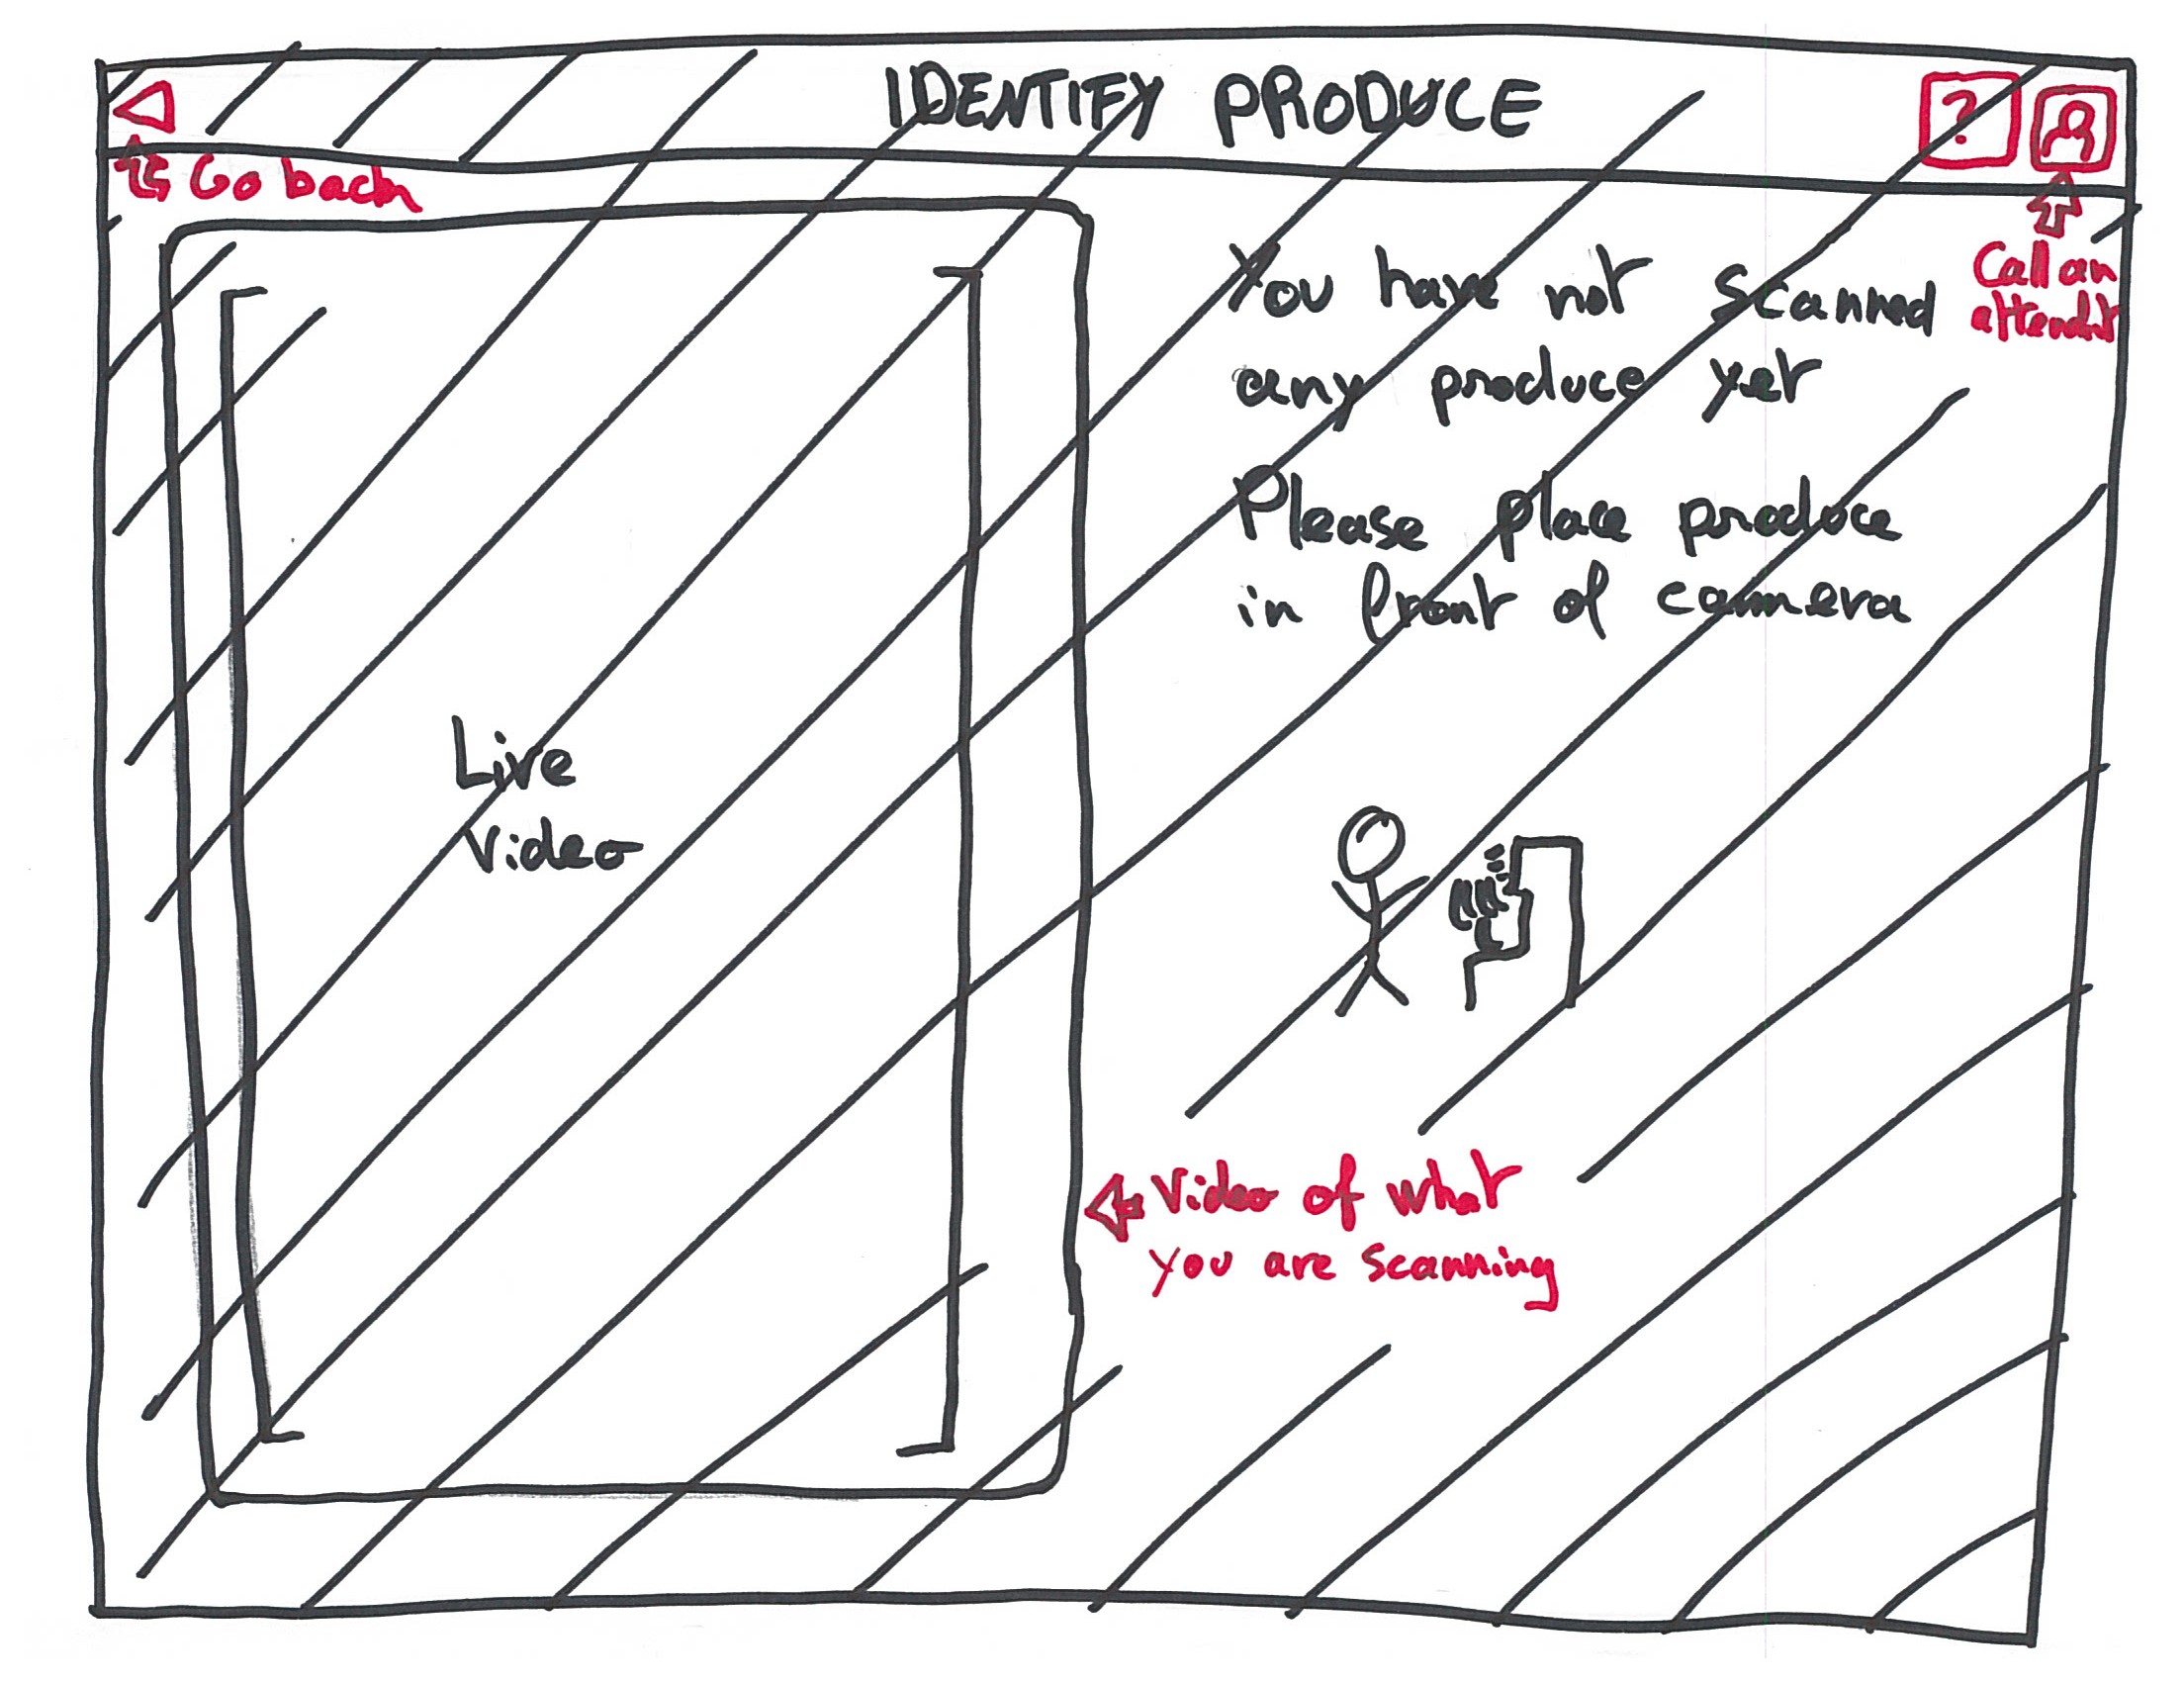 IDENTIFY PRODUCE
?
Go back
You have not scanned
any produce yet
Call an
Please place produce
in front of camera
Live
Video
Video of what
you are scanning